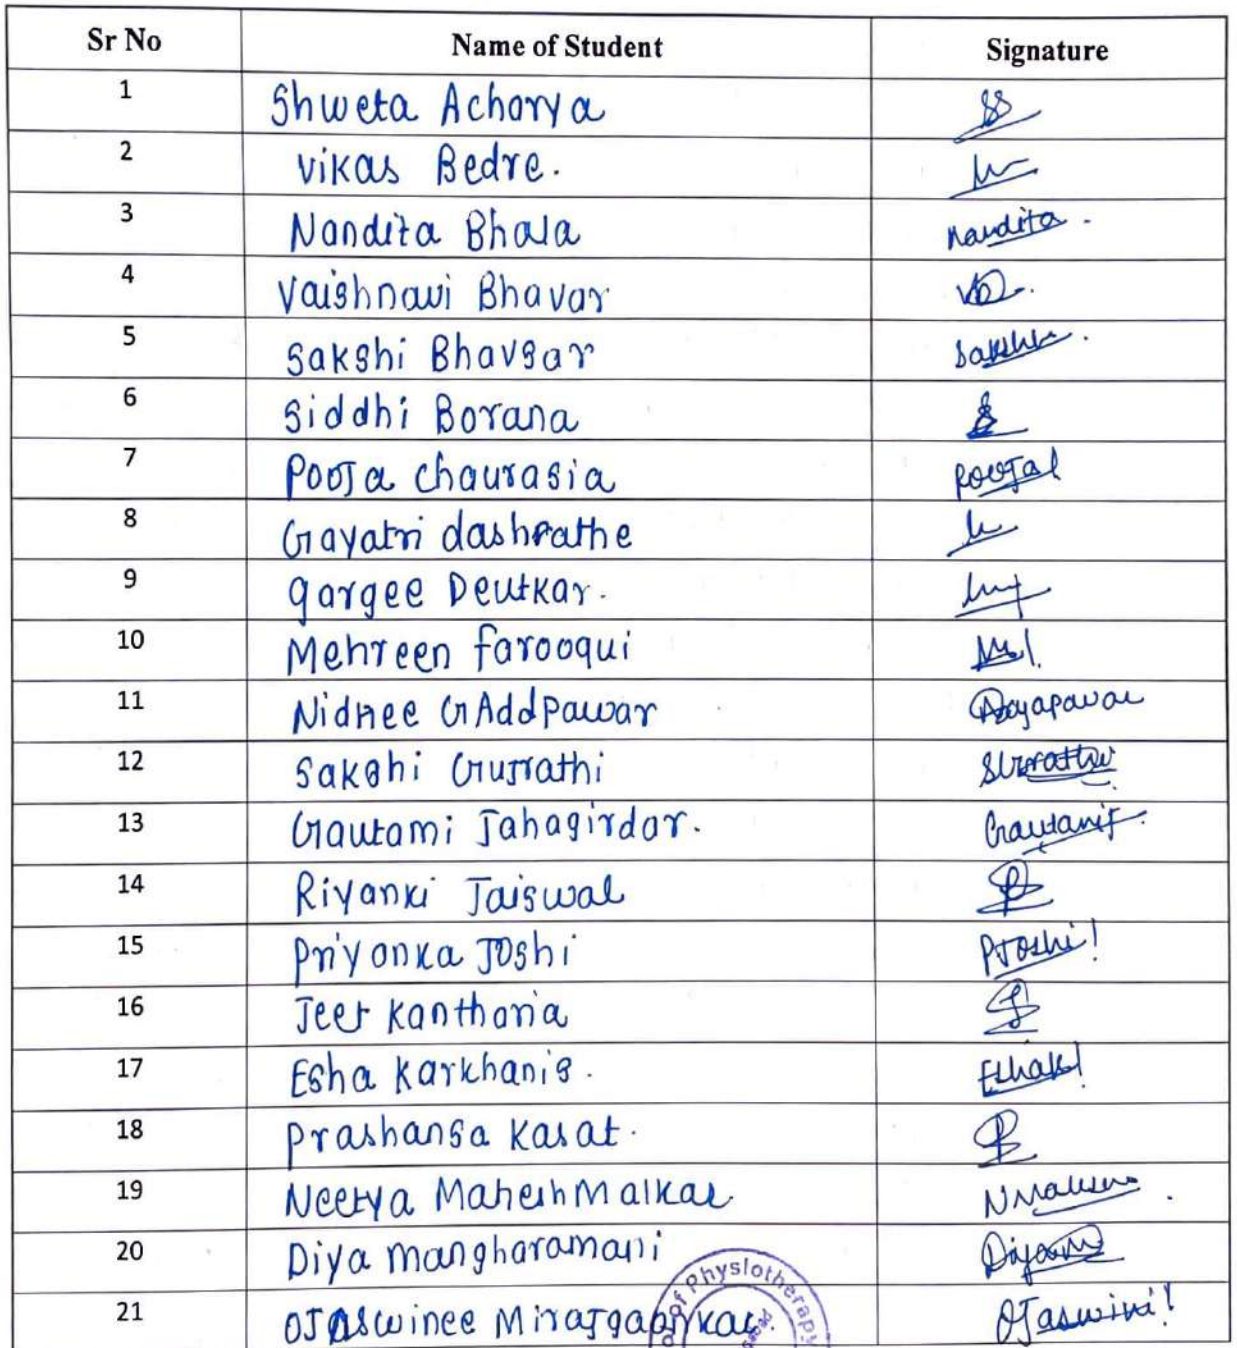 Sr No Name of Student Signature
1 Shweta Acharya
2 Vikas Bedre.
3 Nandita Bhala Nandita.
4 Vaishnavi Bhavar
5 Sakshi Bhavsar Sakshi.
6 Siddhi Borana
7 Pooja chaurasia
8 Gayatri dashrathe
9 gargee Deutkar.
10 Mehreen farooqui
11 Nidhee GAddpawar
12 Sakshi Gujrathi
13 Gautami Jahagirdar.
14 Riyanki Jaiswal
15 Priyanka Joshi PJoshi!
16 Jeet Kantharia
17 Esha Karkhanis. EshaK!
18 Prashansa Kasat.
19 Neerya Mahesh Malkar
20 Diya Mangharamani
21 Ojaswinee Ojaswini!
of Physiotherapy